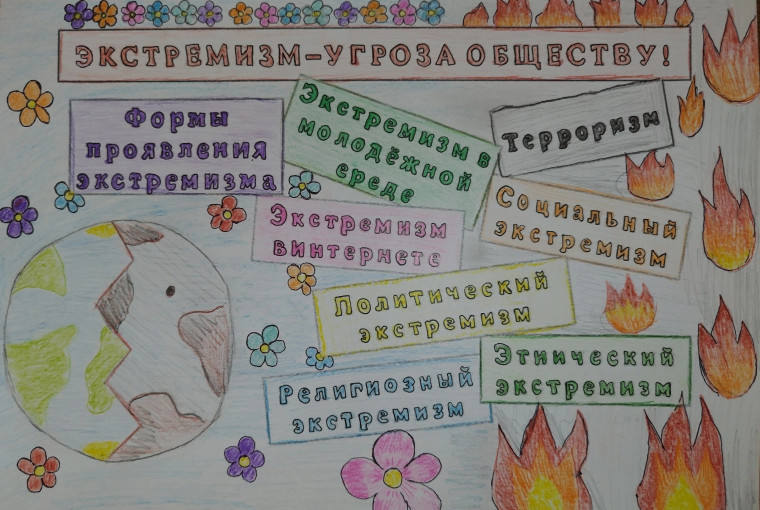 ЭКСТРЕМИЗМ-УГРОЗА ОБЩЕСТВУ!
Формы
проявления
экстремизма
Экстремизм в
молодёжной
ереде
Терроризм
Социальный
экстремизм
Экстремизм
винтернете
Политический
экстремизм
Этнический
экстремизм
Религиозный
экстремизм